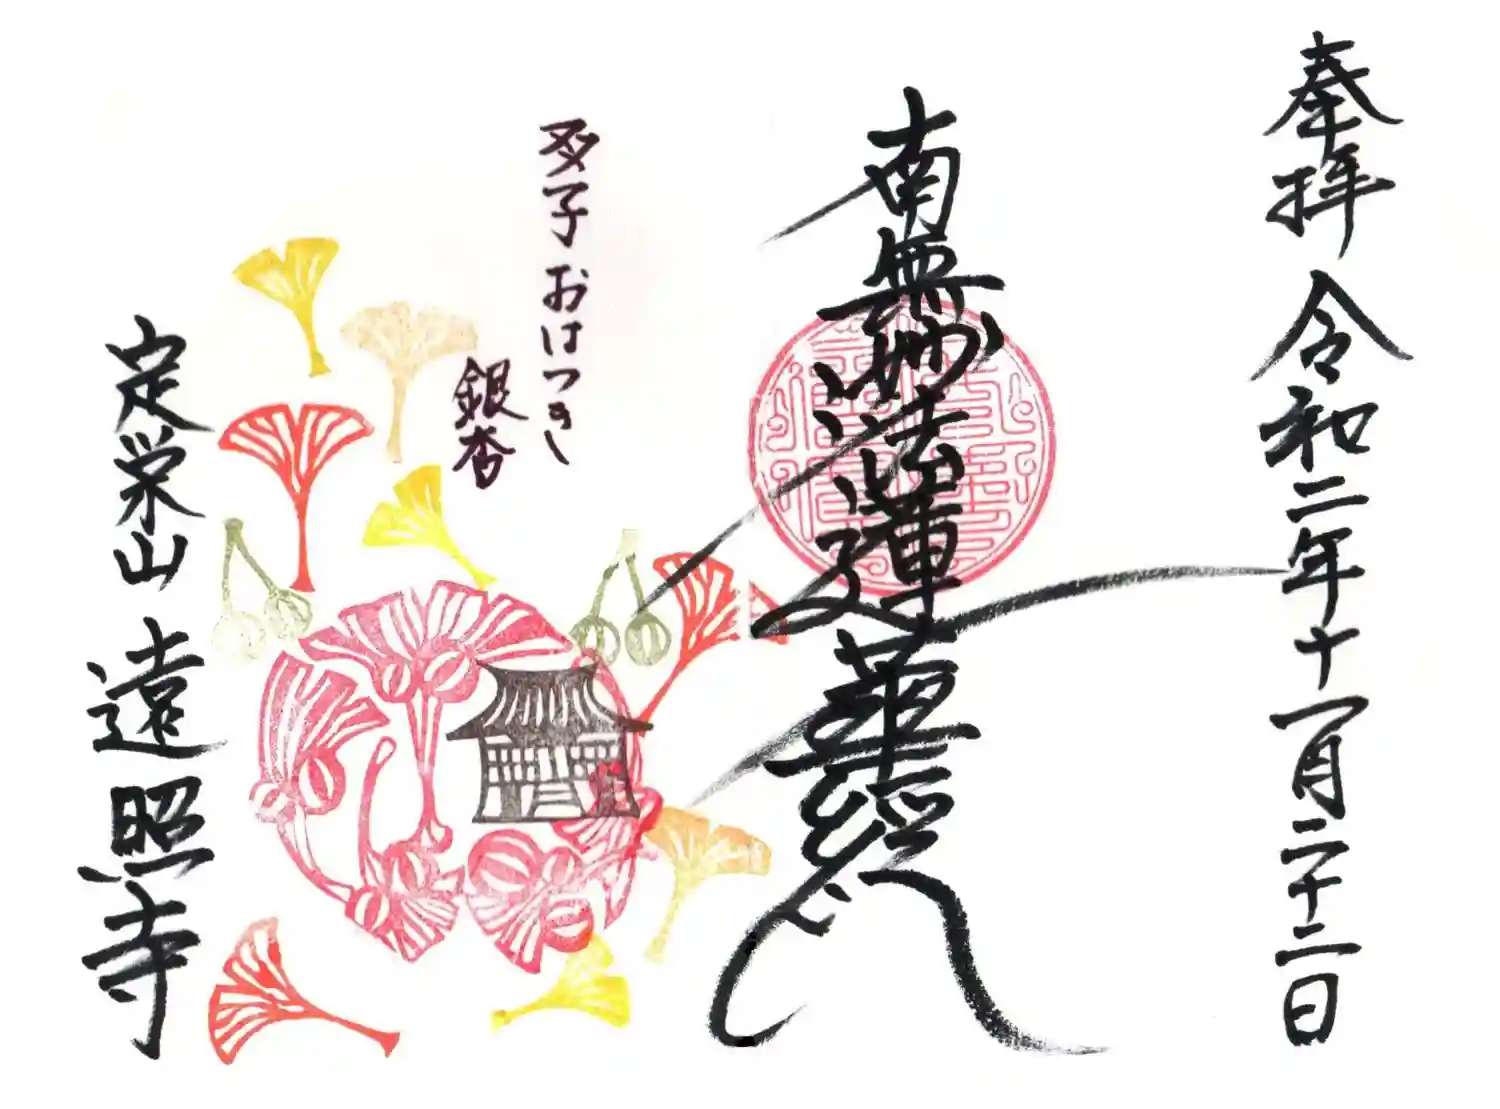 奉拝 令和二年十一月二十二日
南無妙法蓮華經
多子おはつき
銀杏
定栄山 遠照寺